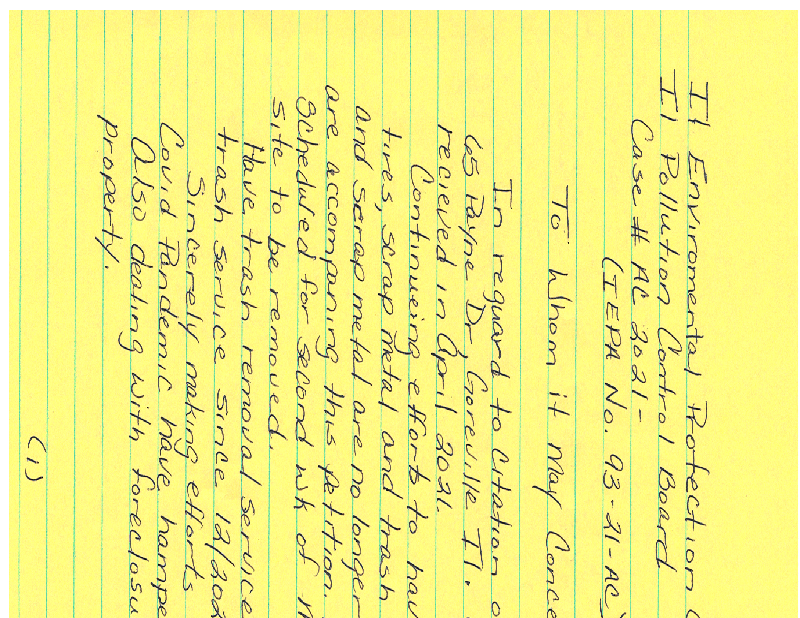 Il Enviromental Protection
Il Pollution Control Board
Case # AC 2021-
(IEPA No. 93-21-AC)
To Whom it May Conce
In reguard to citation o
65 Payne Dr, Goreville Il.
recieved in April 2021.
Continueing efforts to hav
tires, scrap metal and trash
and scrap metal are no longer
are accompaning this petition.
Scheduled for second wk of M
site to be removed.
Have trash removal service
trash service since 12/202
Sincerely making efforts
Covid Pandemic have hampe
Also dealing with foreclosu
property.
(1)